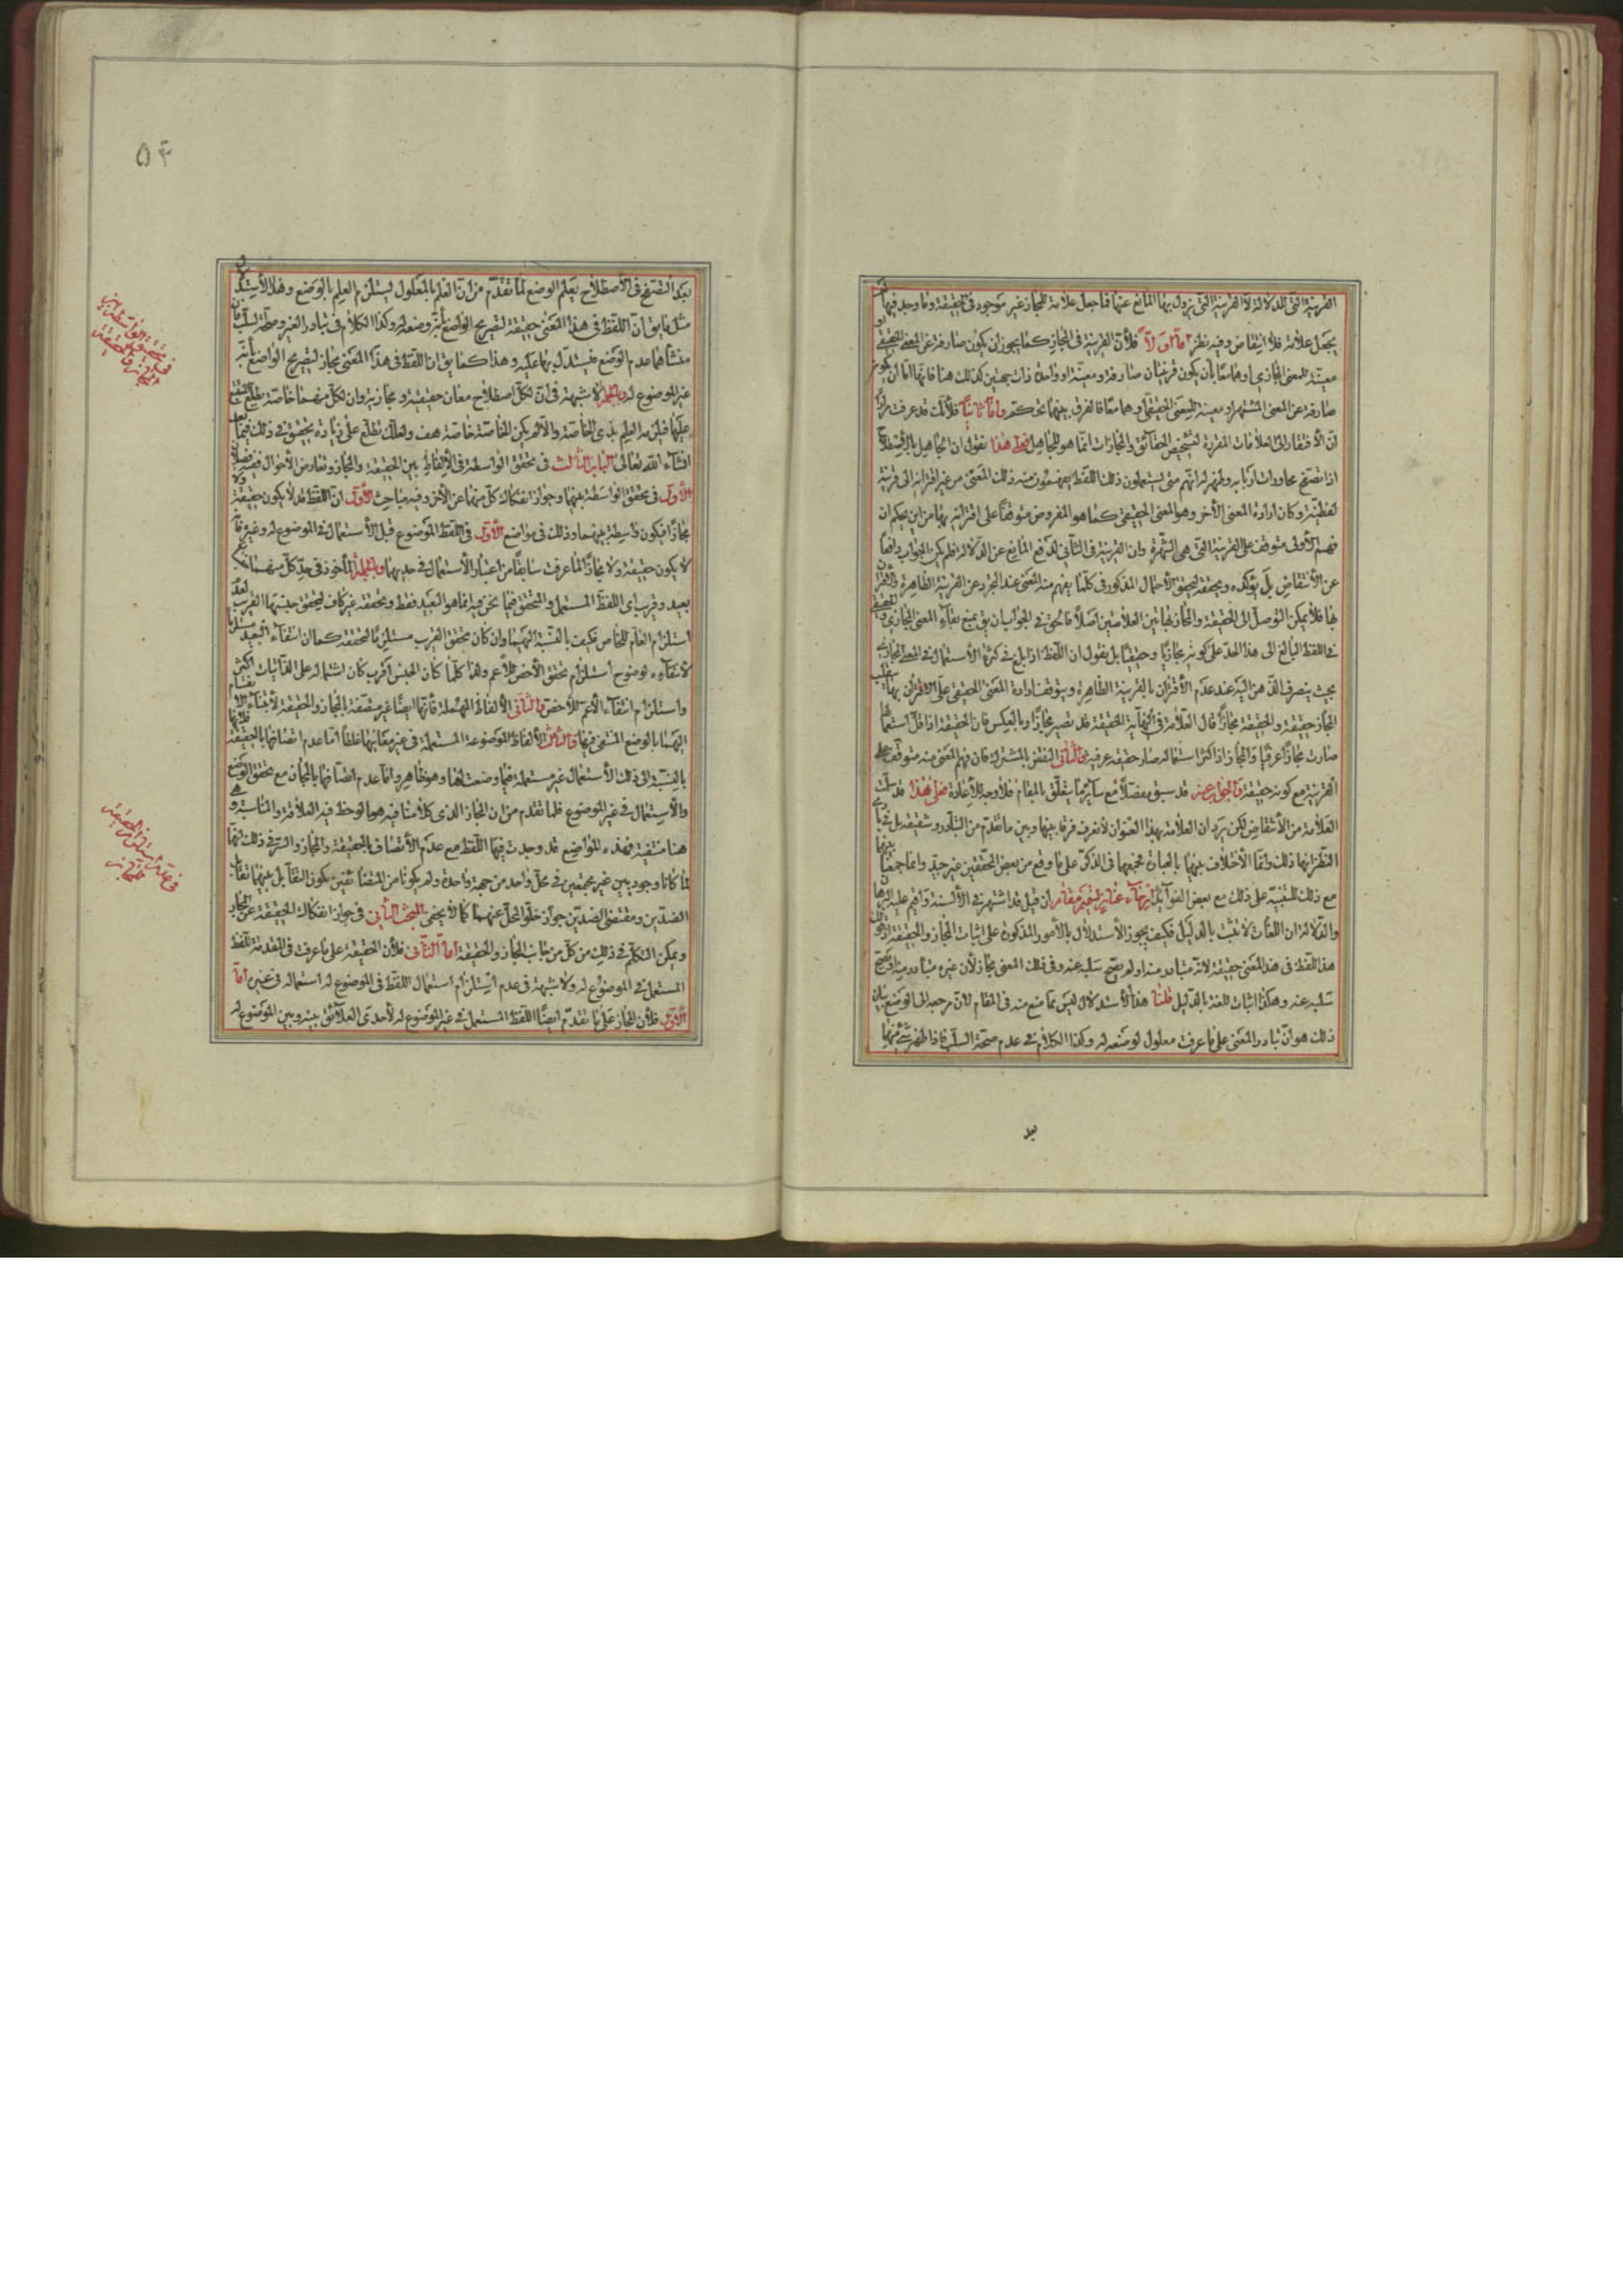 القرينة التي للدلالة لا القرينة التي يزول بها المانع عنها فما جعل علامة للمجاز غير موجود في الحقيقة وما وجد فيها لم
يجعل علامة فلا انتقاض وفيه نظر اما اولا فلان القرينة في المجاز كما يجوز ان يكون صارفة عن المعنى الحقيقي او
معينة للمعنى المجازي او هما معا بان يكون قرينتان صارفة ومعينة او واحدة ذات جهتين كذلك هنا فانها اما ان يكون
صارفة عن المعنى المشتهر او معينة للمعنى الحقيقي او هما معا فالفرق بينهما تحكم واما ثانيا فلانك قد عرفت مرارا
ان الافتقار الى العلامات المقررة لتشخيص الحقائق والمجازات انما هو للجاهل فعلى هذا نقول ان الجاهل بالاصطلاح
اذا تصفح محاورات اربابه وظهر له انهم متى يستعملون ذلك اللفظ يفهمون منه ذلك المعنى من غير افتقار الى قرينة
لفظية وكان ارادة المعنى الاخر وهو المعنى الحقيقي كما هو المفروض متوقفا على اقترانه بها من اين يحكم ان
فهم الاولى متوقف على القرينة التي هي الشهرة وان القرينة في الثاني لدفع المانع عن الدلالة فلم يكن الجواب دافعا
عن الانتقاض بل يؤكده ويحققه لتحقق الاحتمال المذكور في كلما يفهم منه المعنى عند التجرد عن القرينة الظاهرة
بها فلا يمكن التوصل الى الحقيقة والمجاز بهاتين العلامتين اصلا فالحق في الجواب ان يق بمنع بقاء المعنى المجازي والحقيقي
في اللفظ البالغ الى هذا الحد على كونه مجازيا وحقيقيا بل نقول ان اللفظ اذا بلغ في كثرة الاستعمال في المعنى المجازي
بحيث ينصرف الذهن اليه عند عدم الاقتران بالقرينة الظاهرة ويتوقف ارادة المعنى الحقيقي على الاقتران بها ينقلب
المجاز حقيقة والحقيقة مجازا قال العلامة في النهاية الحقيقة قد تصير مجازا وبالعكس فان الحقيقة اذا قل استعمالها
صارت مجازا عرفيا والمجاز اذا كثر استعماله صار حقيقة عرفية والثاني النقض بالمشترك فان فهم المعنى منه متوقف على
القرينة مع كونه حقيقة والجواب عنه قد سبق مفصلا مع سائر ما يتعلق بالمقام فلا وجه للاعادة فعلى هذا قد سلمت
العلامة من الانتقاض لكن يرد ان العلامة بهذا العنوان لا نعرف فرقا بينها وبين ما تقدم من التبادر وشقيقه بل
النظر انها ذلك وانما الاختلاف بينهما بالعبارة فجمعهما في الذكر على ما وقع من بعض المحققين غير جيد وانما جمعنا بينهما
مع ذلك للتنبيه على ذلك مع بعض الفوائد ارخاء عنان لتتميم مقام ان قيل قد اشتهر في الالسنة واقيم عليه البرهان
والدلالة ان اللغات لا تثبت بالدليل فكيف يجوز الاستدلال بالامور المذكورة على اثبات المجاز والحقيقة اذ
هذا اللفظ في هذا المعنى حقيقة لانه متبادر منه او لم يصح سلبه عنه وفي ذلك المعنى مجاز لان غيره متبادر منه او يصح
سلبه عنه وهكذا اثبات للغة بالدليل قلنا هذا الاستدلال ليس مما منع منه في المقام لان مرجعه الى الوضع بيان
ذلك هو ان تبادر المعنى على ما عرفت معلول لوضعه له وكذا الكلام في عدم صحة السلب فاذا ظهر شيء منها
بعد
٥٤
بعد التصفح في الاصطلاح يعلم الوضع لما تقدم من ان العلم بالمعلول يستلزم العلم بالوضع وهذا الاستدلال
مثل ما يق ان اللفظ في هذا المعنى حقيقة لتصريح الواضع بانه وضعه له وكذا الكلام في تبادر الغير وصحة السلب فان
منشاهما عدم الوضع فيستدل بهما عليه وهذا كما يق ان اللفظ في هذا المعنى مجاز لتصريح الواضع بانه
غير الموضوع له وبالجملة لا شبهة في ان لكل اصطلاح معان حقيقية ومجازية وان لكل منهما خاصة يطلع المتتبع
عليها فيلزمه العلم بذي الخاصة والا لم يكن الخاصة خاصة هف ولعلك تطلع على زيادة تحقيق في ذلك فيما بعد
انشاء الله تعالى الباب الثالث في تحقق الواسطة في الالفاظ بين الحقيقة والمجاز وتعارض الاحوال فصلان
الاول في تحقق الواسطة بينهما وجواز انفكاك كل منهما عن الاخر وفيه مباحث الاول ان اللفظ قد لا يكون حقيقة ولا
مجازا فيكون واسطة بينهما وذلك في مواضع الاول في اللفظ الموضوع قبل الاستعمال في الموضوع له وغيره فانه
لا يكون حقيقة ولا مجازا لما عرفت سابقا من اعتبار الاستعمال في حديهما وبالجملة الماخوذ في حد كل منهما
بعيد وقريب اي اللفظ المستعمل والمتحقق فيما نحن فيه انما هو البعيد فقط وتحققه غير كاف لتحقق جنسهما القريب لعدم
استلزام العام للخاص فكيف بالنسبة اليهما وان كان تحقق القريب مستلزما لتحققه كما ان انتفاء البعيد مستلزم
لانتفائه لوضوح استلزام تحقق الاخص للاعم ولذا كلما كان الجنس اقرب كان اشتماله على الذاتيات اكثر
واستلزام انتفاء الاعم للاخص والثاني الالفاظ المهملة فانها ايضا غير متصفة بالمجاز والحقيقة لابتناء
اليهما بالوضع المنتفي فيها والثالث الالفاظ الموضوعة المستعملة في غير معانيها غلطا اما عدم اتصافها بالحقيقة فلانها
بالنسبة الى ذلك الاستعمال غير مستعملة فيما وضعت لها وهو ظاهر واما عدم اتصافها بالمجاز مع تحقق الوضع
والاستعمال في غير الموضوع فلما تقدم من ان المجاز الذي كلامنا فيه هو ما لوحظ فيه العلاقة والمناسبة وهي
هنا منتفية فهذه المواضع قد وجدت فيها اللفظ مع عدم الاتصاف بالحقيقة والمجاز والسر في ذلك انهما
لما كانا وجوديين غير مجتمعين في محل واحد من جهة واحدة ولم يكونا من المتضايفين يكون التقابل بينهما تقابل
الضدين ومقتضى الضدين جواز خلو المحل عنهما كما لا يخفى المبحث الثاني في جواز انفكاك الحقيقة عن المجاز
ويمكن التكلم في ذلك من كل من جانب المجاز والحقيقة اما الثاني فلان الحقيقة على ما عرفت في المقدمة للفظ
المستعمل في الموضوع له ولا شبهة في عدم استلزام استعمال اللفظ في الموضوع له استعماله في غيره اما
الاول فلان المجاز على ما تقدم ايضا اللفظ المستعمل في غير الموضوع له لاحدى العلائق بينه وبين الموضوع له
في تحقق الواسطة بين
المجاز والحقيقة